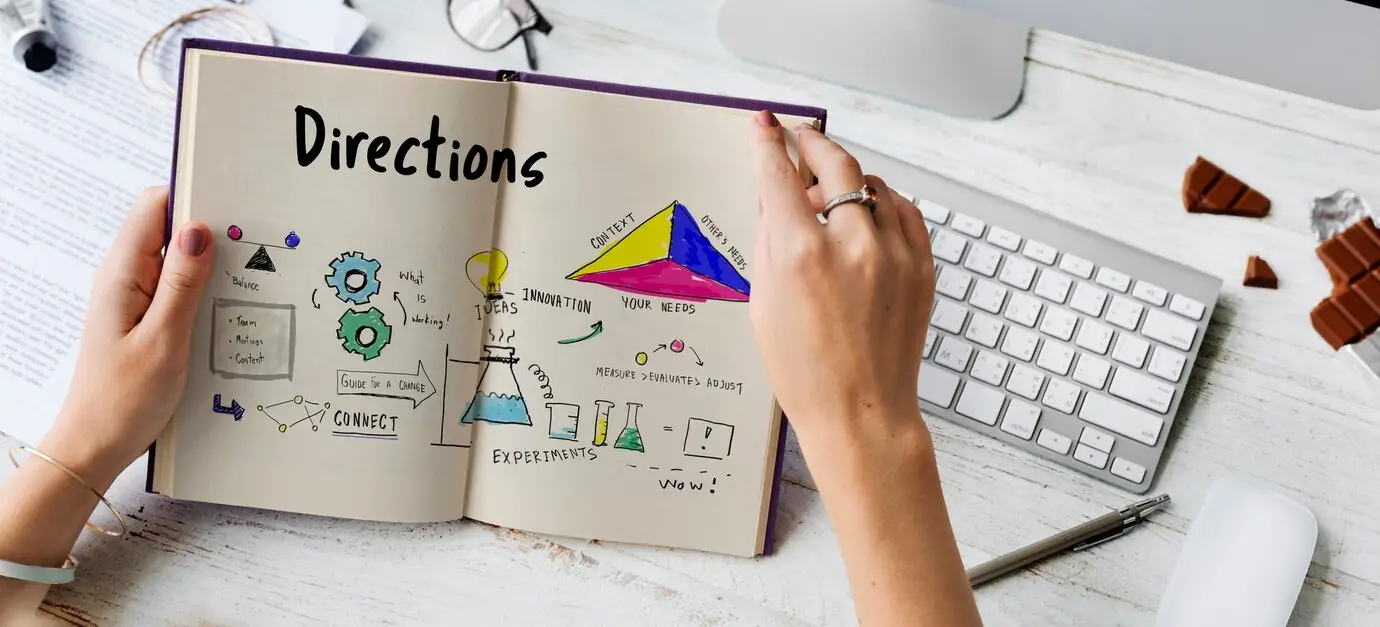 Directions
Balance
• Team
• Meetings
• Content
What
is
working!
GUIDE FOR A CHANGE
CONNECT
IDEAS
INNOVATION
CONTEXT
OTHER'S NEEDS
YOUR NEEDS
MEASURE > EVALUATE > ADJUST
EXPERIMENTS
= !
WOW!